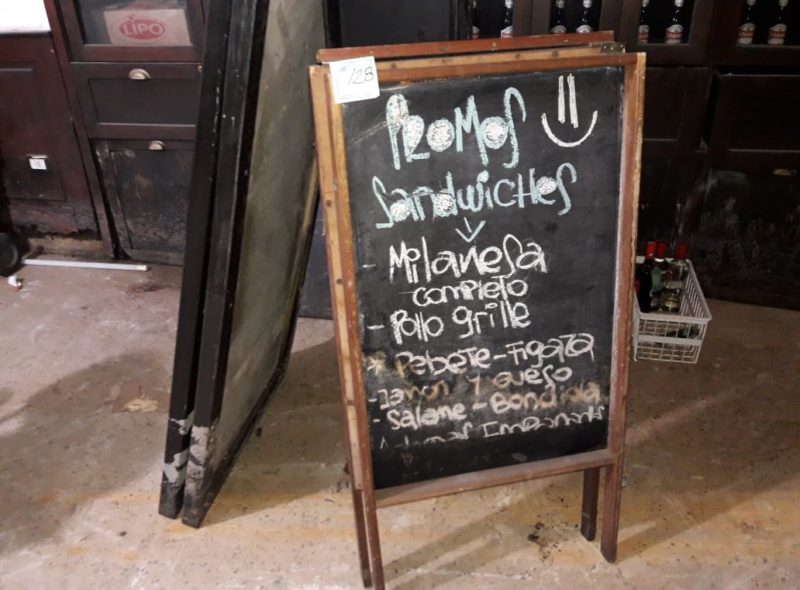 LIPO
128
PROMOS
SANDWICHES
- Milanesa
completo
- Pollo grille
* Pebete - Figaza
- Jamon y Queso
- Salame - Bondiola